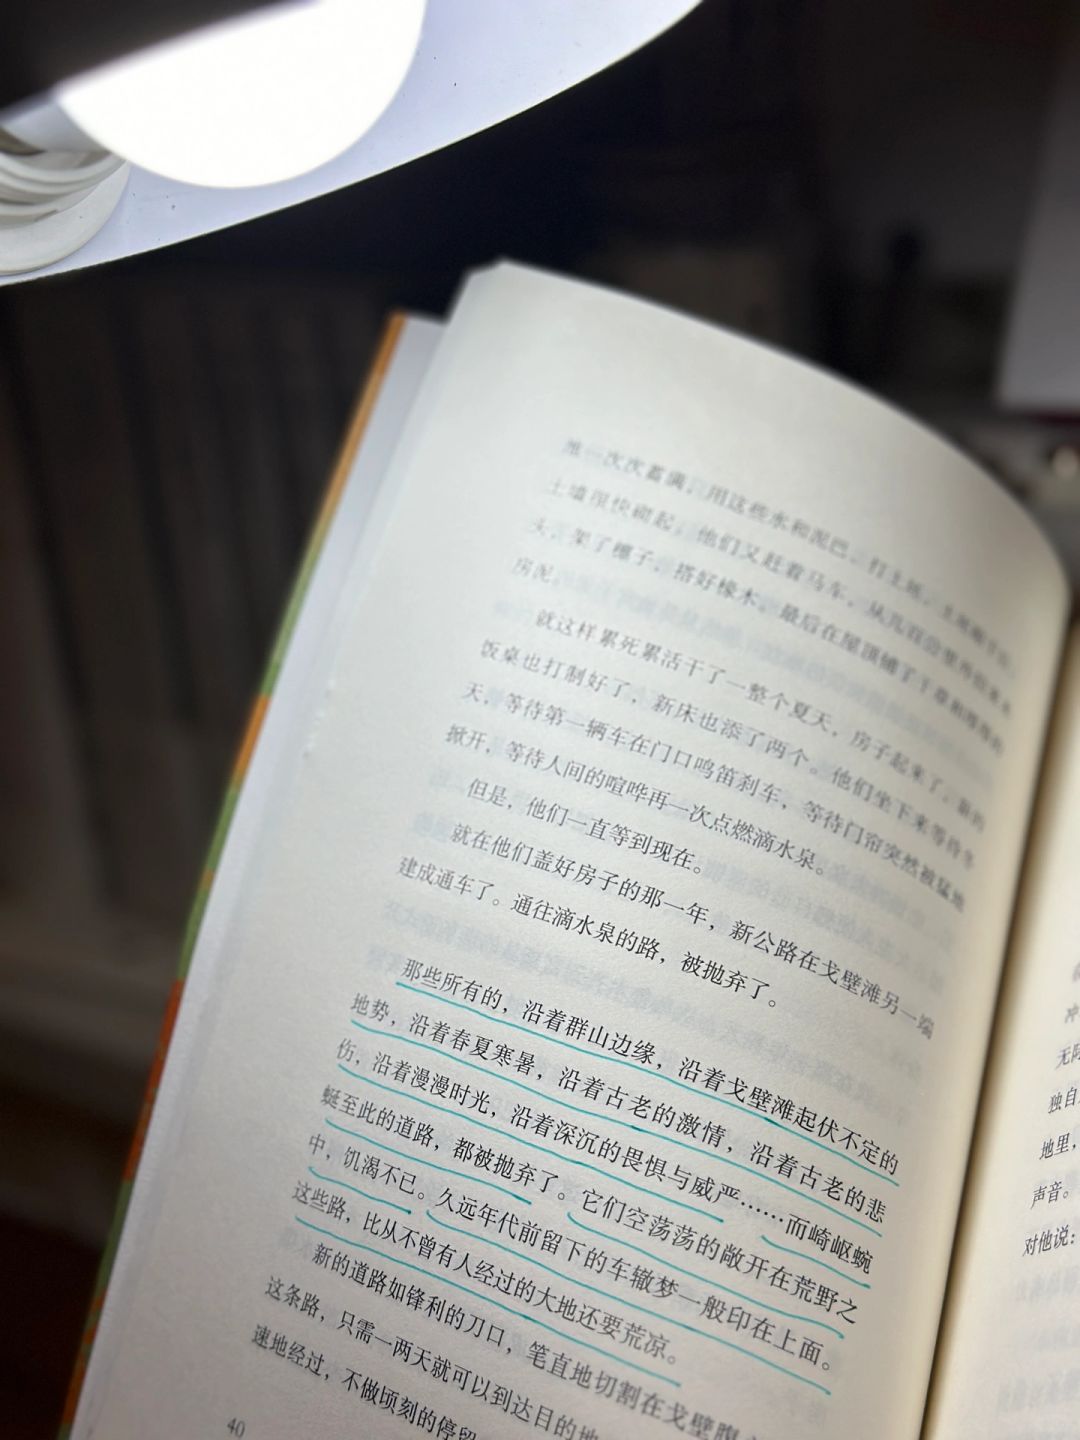 一次次蓄满，用这些水和泥巴，打土坯，
土墙很快砌起，他们又赶着马车，从几百公里外拉来木
头，架了檩子，搭好椽木，最后在屋顶铺了干草和厚厚的
房泥。
就这样累死累活干了一整个夏天，房子起来了，新的
饭桌也打制好了，新床也添了两个。他们坐下来等待冬
天，等待第一辆车在门口鸣笛刹车，等待门帘突然被猛地
掀开，等待人间的喧哗再一次点燃滴水泉。
但是，他们一直等到现在。
就在他们盖好房子的那一年，新公路在戈壁滩另一端
建成通车了。通往滴水泉的路，被抛弃了。
那些所有的，沿着群山边缘，沿着戈壁滩起伏不定的
地势，沿着春夏寒暑，沿着古老的激情，沿着古老的悲
伤，沿着漫漫时光，沿着深沉的畏惧与威严……而崎岖蜿
蜒至此的道路，都被抛弃了。它们空荡荡的敞开在荒野之
中，饥渴不已。久远年代前留下的车辙梦一般印在上面。
这些路，比从不曾有人经过的大地还要荒凉。
新的道路如锋利的刀口，笔直地切割在戈壁腹
这条路，只需一两天就可以到达目的地
速地经过，不做顷刻的停留
40
冲
无际
独自
地里，
声音。
对他说：